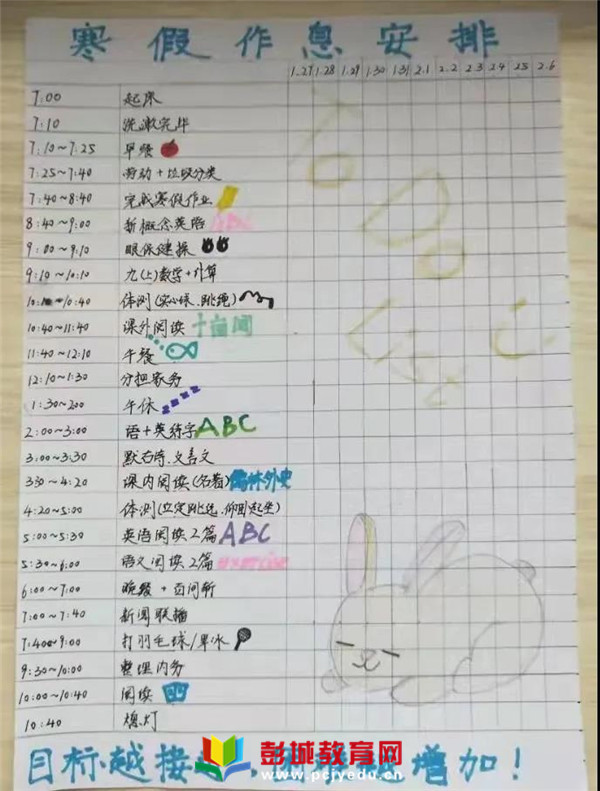 寒假作息安排
1.27 1.28 1.29 1.30 1.31 2.1 2.2 2.3 2.4 2.5 2.6
7:00 起床
7:10 洗漱完毕
7:10~7:25 早餐
7:25~7:40 劳动+垃圾分类
7:40~8:40 完成寒假作业
8:40~9:00 新概念英语 ABC
9:00~9:10 眼保健操
9:10~10:10 九(上)数学+计算
10:~10:40 体测(实心球.跳绳)
10:40~11:40 课外阅读
11:40~12:10 午餐
12:10~1:30 分担家务
1:30~2:00 午休 zzzz
2:00~3:00 语+英练字 ABC
3:00~3:30 默古诗.文言文
3:30~4:20 课内阅读(名著) 儒林外史
4:20~5:00 体测(立定跳远.仰卧起坐)
5:00~5:30 英语阅读2篇 ABC
5:30~6:00 语文阅读2篇 exercise
6:00~7:00 晚餐+
7:00~7:40 新闻联播
7:40~9:00 打羽毛球/
9:30~10:00 整理内务
10:00~10:40 阅读
10:40 熄灯
To Do List
目标越接 增加!
彭城教育网
www.pcjyedu.cn